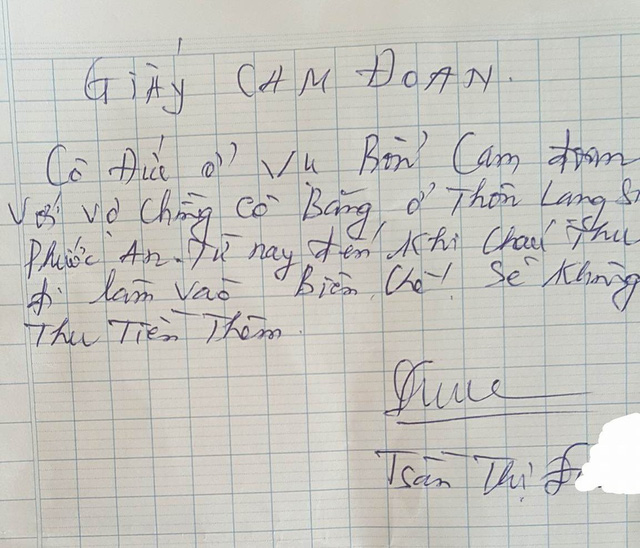 GIẤY CAM ĐOAN.
Cô Đức ở Vụ Bổn Cam đoan
Với vợ chồng cô Bằng ở Thôn Lang
Phước An. Từ nay đến khi cháu Thu
đi làm vào Biên chế! Sẽ không
Thu Tiền Thêm.
Trần Thị Đ